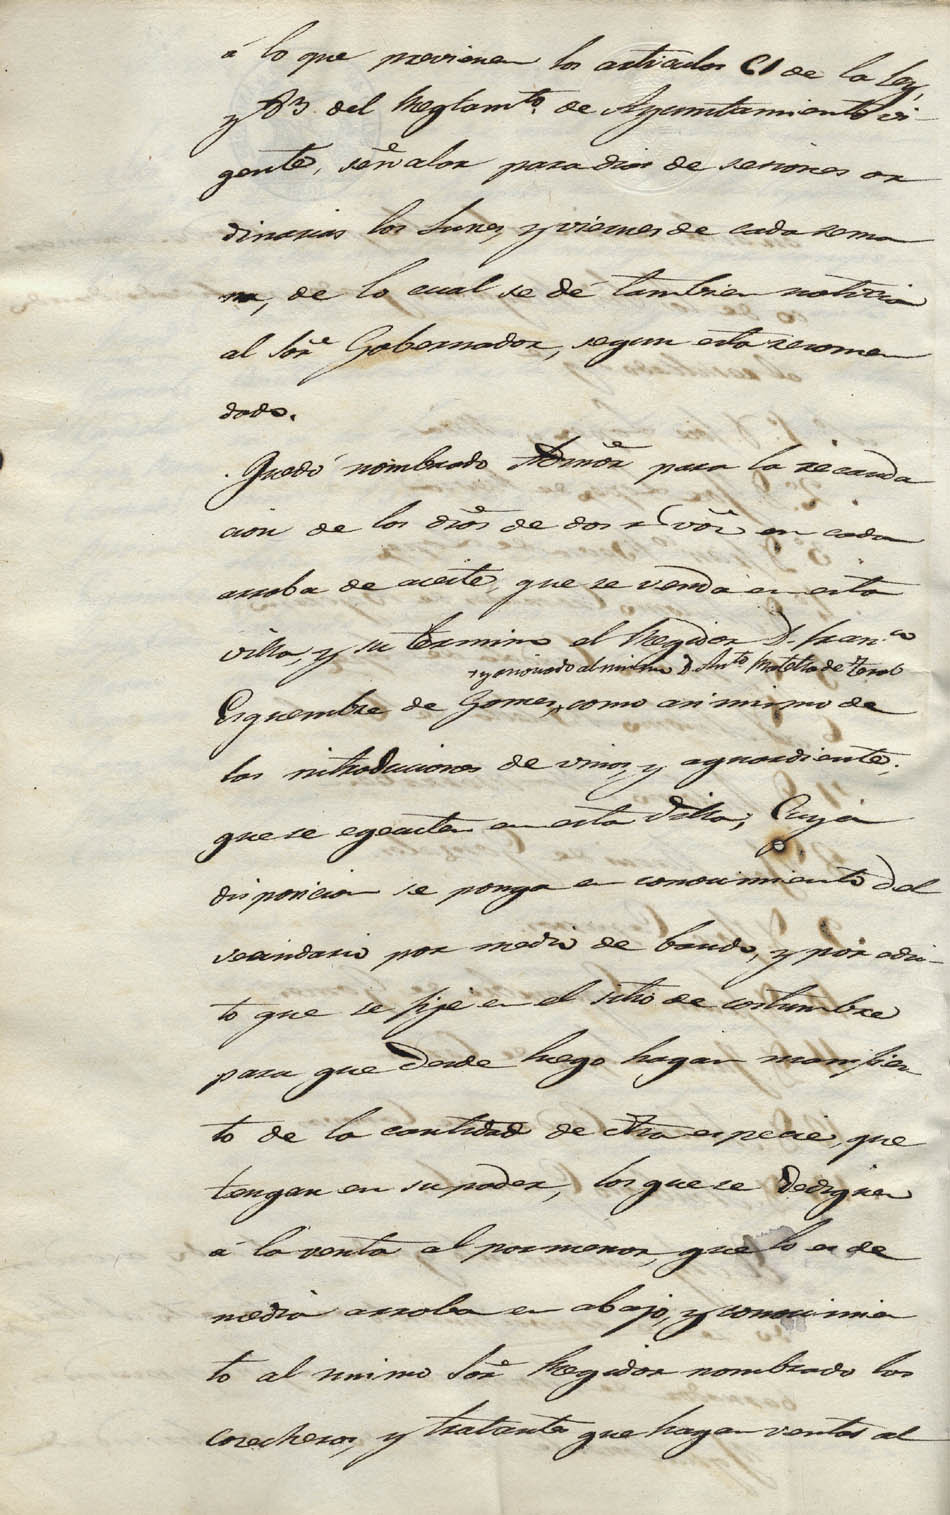 á lo que previenen los articulos 61 de la Ley,
y 83 del Reglamto. de Ayuntamiento vi-
gente, señalar para dias de sesiones or
dinarias los Lunes, y viernes de cada sema
na, de lo cual se dé tambien noticia
al Sor. Gobernador, segun esta recomen
dado.
Quedó nombrado Admor. para la recauda
cion de los dros. de dos rs. von. en cada
arroba de aceite, que se venda en esta
villa, y su termino el Regidor D. Franco.
+y asociado al mismo D. Anto.
Esquembre de Gomez,+ como asi mismo de
las introduciones de vinos, y aguardiente,
que se egecuten en esta Villa; Cuya
disposicion se ponga en conocimiento del
vecindario por medio de bando, y por edic-
to que se fije en el sitio de costumbre
para que desde luego hagan manifies
to de la cantidad de dha especie, que
tengan en su poder, los que se dediquen
á la venta al por menor, que lo es de
media arroba en abajo, y conocimien
to al mismo Sor. Regidor nombrado los
cosecheros, y tratantes que hagan ventas al